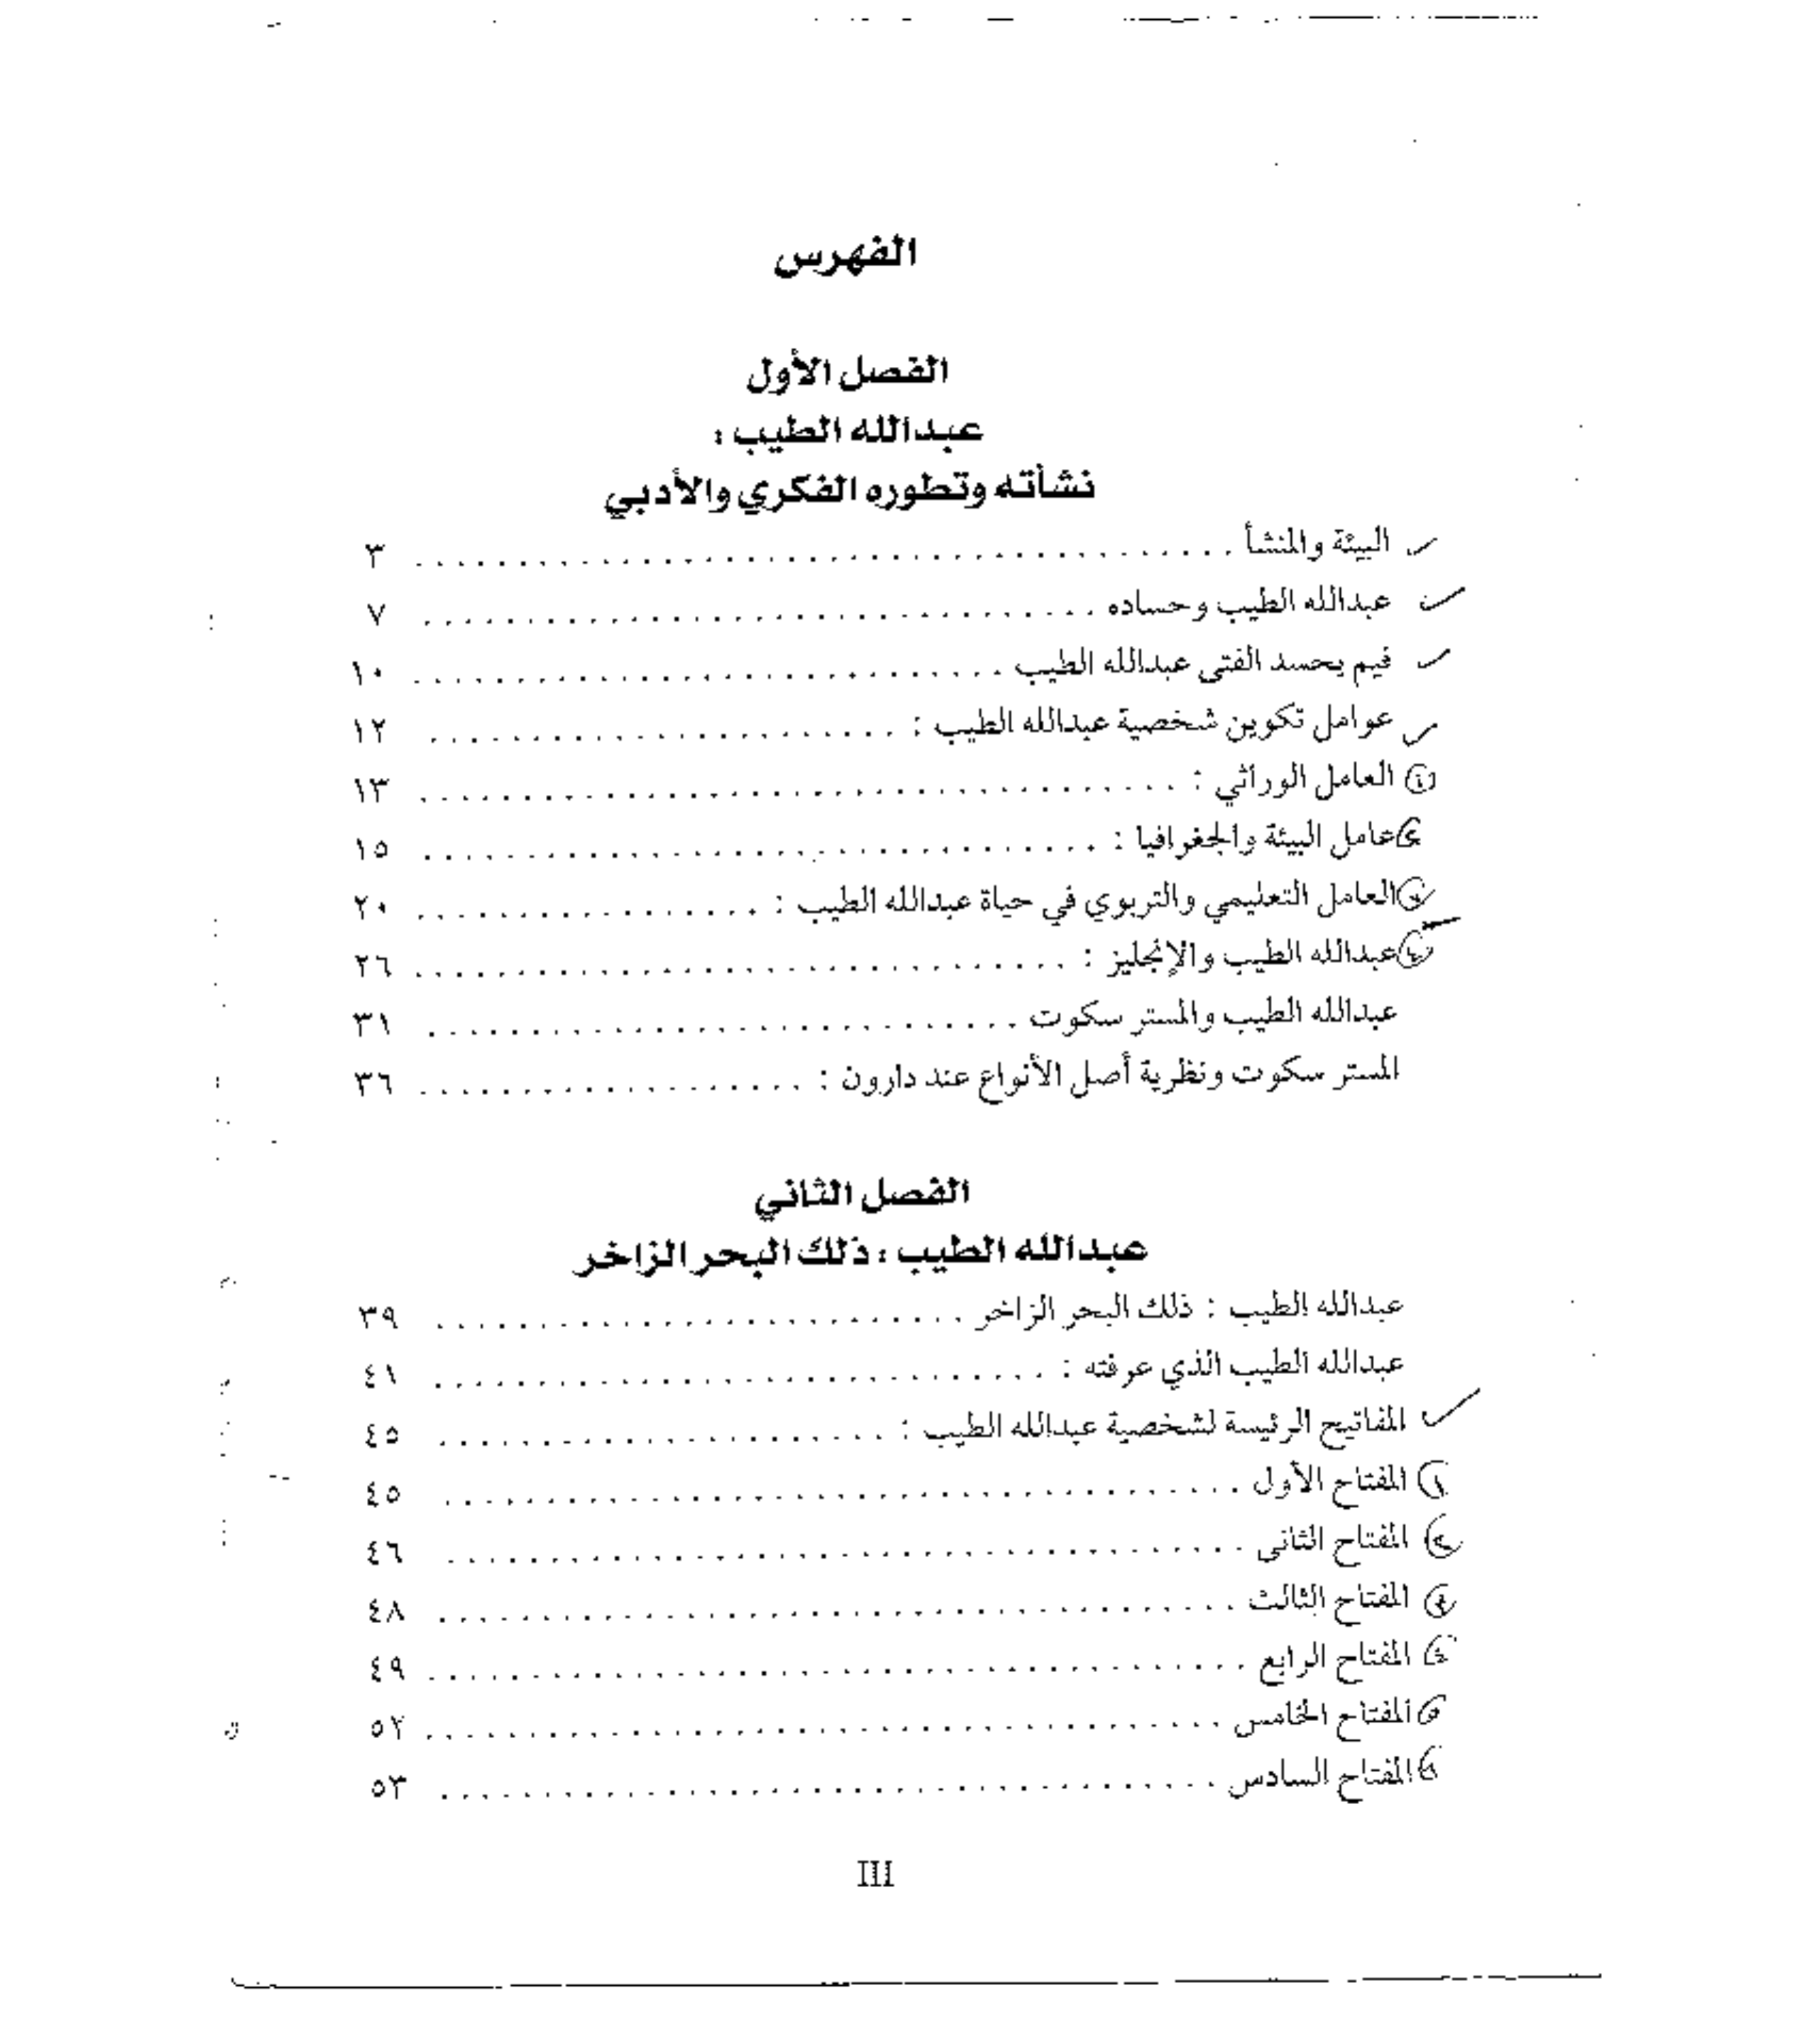 الفهرس
الفصل الأول
عبدالله الطيب :
نشأته وتطوره الفكري والأدبي
البيئة والمنشأ . . . . . . . . . . ٣
عبدالله الطيب وحساده . . . . . . . . . . ٧
فيم يحسد الفتى عبدالله الطيب . . . . . . . . . . ١٠
عوامل تكوين شخصية عبدالله الطيب : . . . . . . . . . . ١٢
١ العامل الوراثي : . . . . . . . . . . ١٣
٢ عامل البيئة والجغرافيا : . . . . . . . . . . ١٥
٣ العامل التعليمي والتربوي في حياة عبدالله الطيب : . . . . . . . . . . ٢٠
٤ عبدالله الطيب والإنجليز : . . . . . . . . . . ٢٦
عبدالله الطيب والمستر سكوت . . . . . . . . . . ٣١
المستر سكوت ونظرية أصل الأنواع عند دارون : . . . . . . . . . . ٣٦
الفصل الثاني
عبدالله الطيب : ذلك البحر الزاخر
عبدالله الطيب : ذلك البحر الزاخر . . . . . . . . . . ٣٩
عبدالله الطيب الذي عرفته : . . . . . . . . . . ٤١
المفاتيح الرئيسة لشخصية عبدالله الطيب : . . . . . . . . . . ٤٥
١ المفتاح الأول . . . . . . . . . . ٤٥
٢ المفتاح الثاني . . . . . . . . . . ٤٦
٣ المفتاح الثالث . . . . . . . . . . ٤٨
٤ المفتاح الرابع . . . . . . . . . . ٤٩
٥ المفتاح الخامس . . . . . . . . . . ٥٢
٦ المفتاح السادس . . . . . . . . . . ٥٣
III